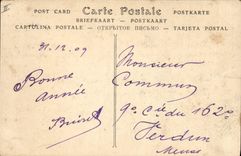 POST CARD Carte Postale POSTKARTE
BRIEFKAART - POSTKAART
CARTOLINA POSTALE - ОТКРЫТОЕ ПИСЬМО - TARJETA POSTAL
31.12.09
Bonne
Année
Monsieur
Commun
9e Cie du 162e
Verdun
Meuse